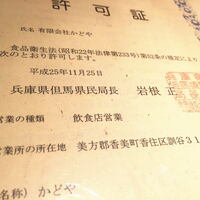 許可証
氏名 有限会社かどや
食品衛生法(昭和22年法律第233号)第52条の規定により
次のとおり許可します。
平成25年11月25日
兵庫県但馬県民局長 岩根 正
営業の種類 飲食店営業
営業所の所在地 美方郡香美町香住区訓谷31
名称) かどや